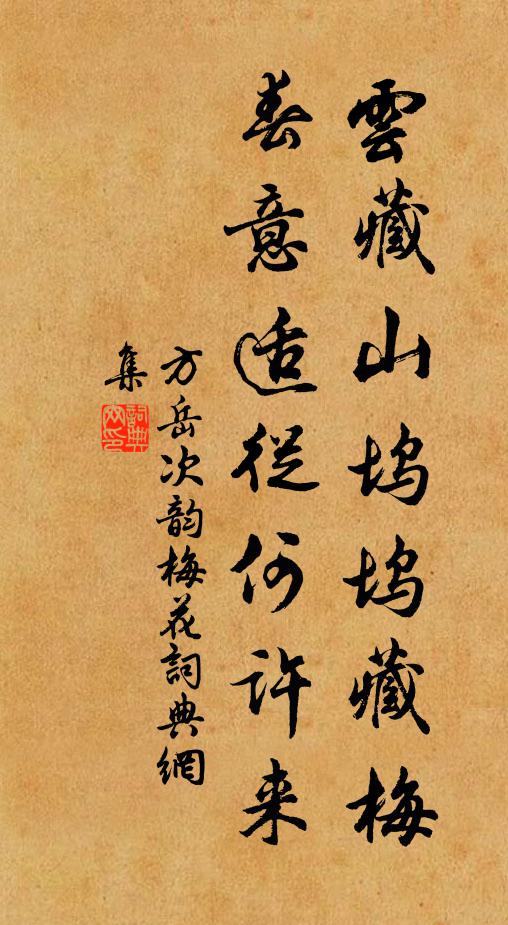 雲藏山坞坞藏梅
春意适從何許来
方岳次韵梅花詞典網
集
詞典
网印